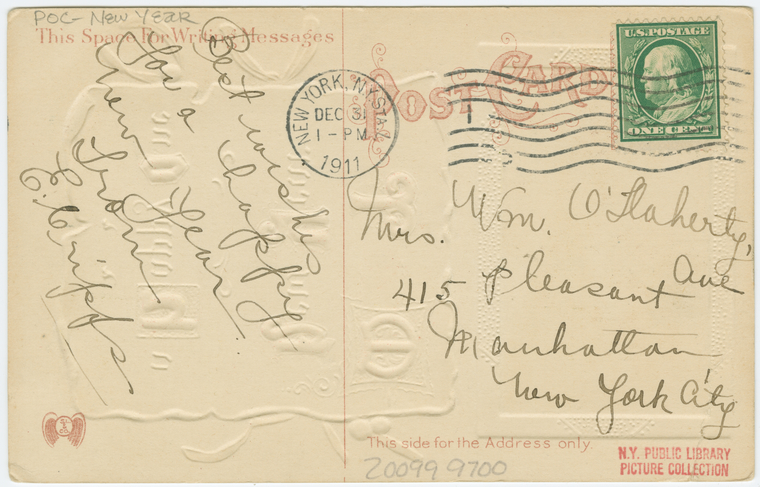 POC- New Year
This Space For Writing Messages
Best wishes
for a happy
new Year.
from
POST CARD
NEW YORK, N.Y. STA.
DEC 31
1 - PM
1911
U.S. POSTAGE
ONE CENT
Mrs. Wm. O'Flaherty,
415 Pleasant Ave
Manhattan
New York City
This side for the Address only.
200999700
N.Y. PUBLIC LIBRARY
PICTURE COLLECTION